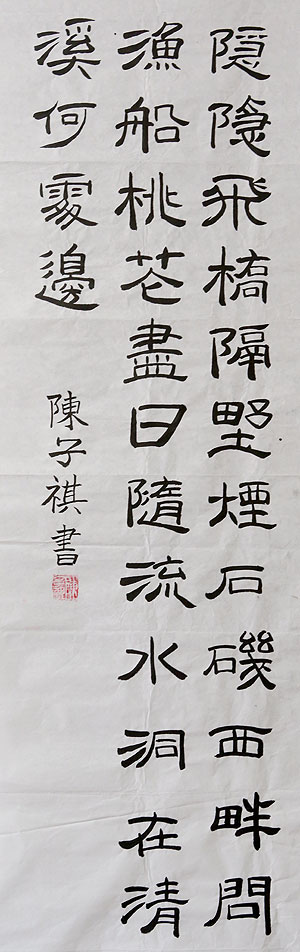 隱隱飛橋隔野煙石磯西畔問
漁船桃花盡日隨流水洞在清
溪何處邊
陳子祺書